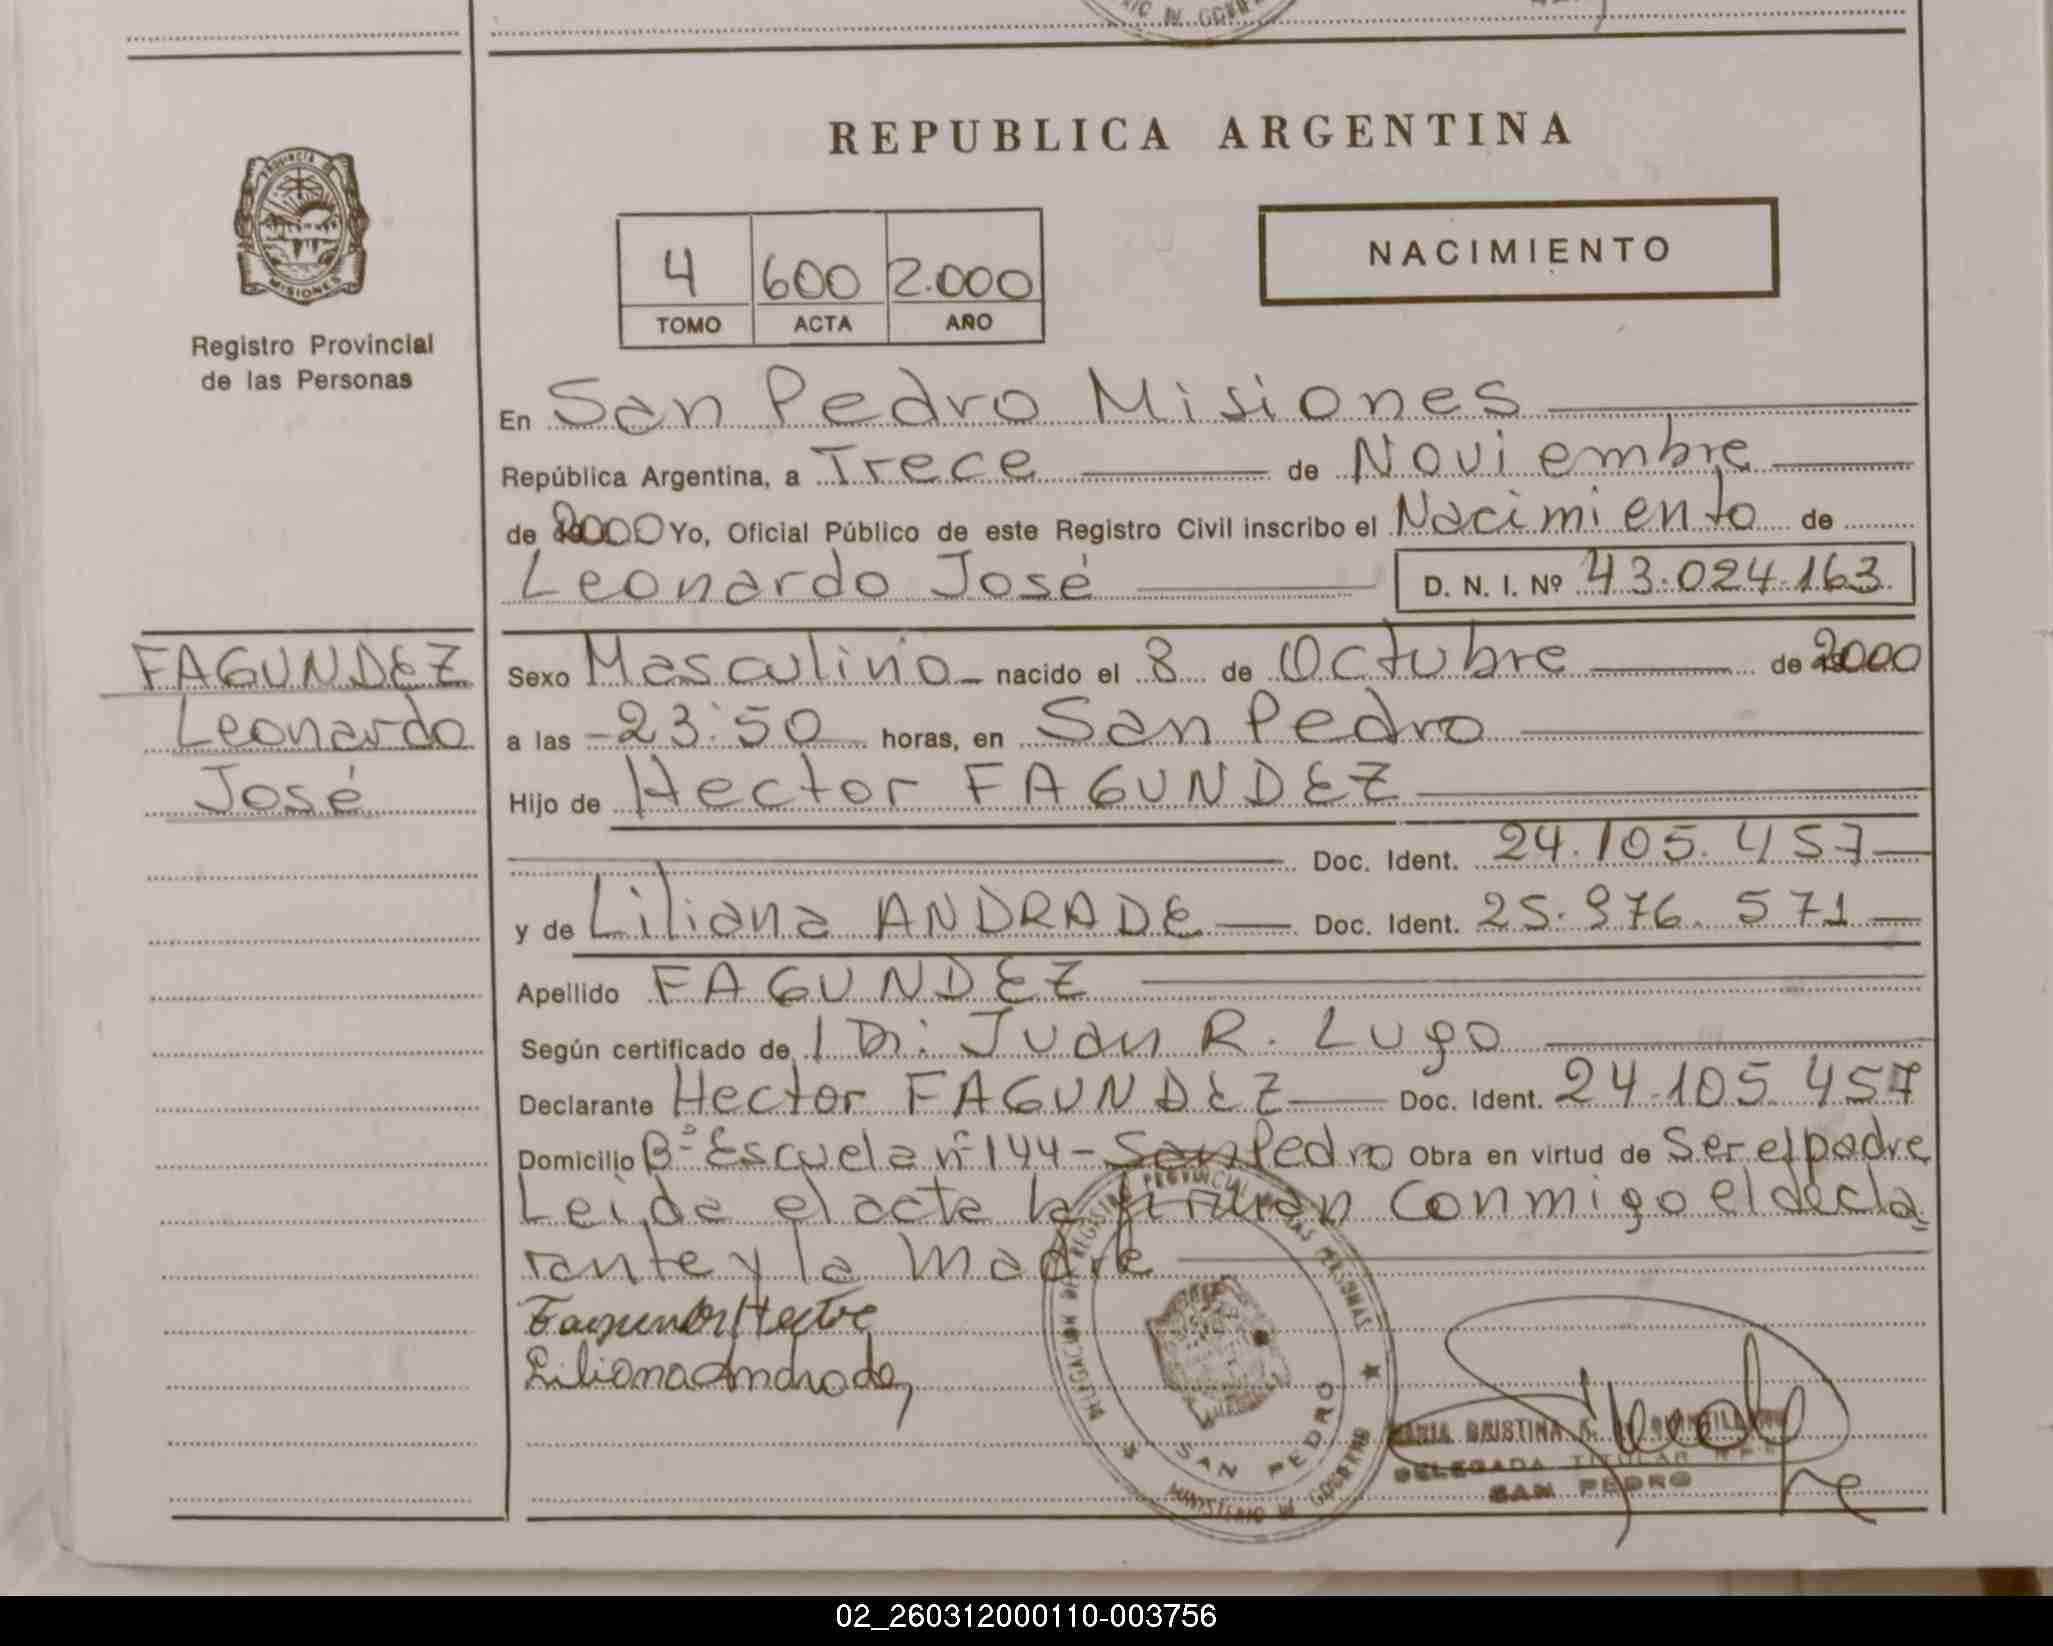 REPUBLICA ARGENTINA
PROVINCIA DE
MISIONES
Registro Provincial
de las Personas
4 600 2.000
TOMO ACTA AÑO
NACIMIENTO
En San Pedro Misiones
República Argentina, a Trece de Noviembre
de 2000 Yo, Oficial Público de este Registro Civil inscribo el Nacimiento de
Leonardo José D. N. I. Nº 43.024.163
FAGUNDEZ
Leonardo
José
Sexo Masculino nacido el 8 de Octubre de 2000
a las 23:50 horas, en San Pedro
Hijo de Hector FAGUNDEZ
Doc. Ident. 24.105.457
y de Liliana ANDRADE Doc. Ident. 25.976.571
Apellido FAGUNDEZ
Según certificado de Dr. Juan R. Lugo
Declarante Hector FAGUNDEZ Doc. Ident. 24.105.457
Domicilio Bº Escuela nº 144 - San Pedro Obra en virtud de Ser el padre
Leida el acta la firman conmigo el decla
rante y la Madre
Fagundez Hector
Liliana Andrade
DELEGACION DEL REGISTRO PROVINCIAL DE LAS PERSONAS
SAN PEDRO
MINISTERIO DE GOBIERNO
MARIA CRISTINA
DELEGADA TITULAR
SAN PEDRO
02_260312000110-003756